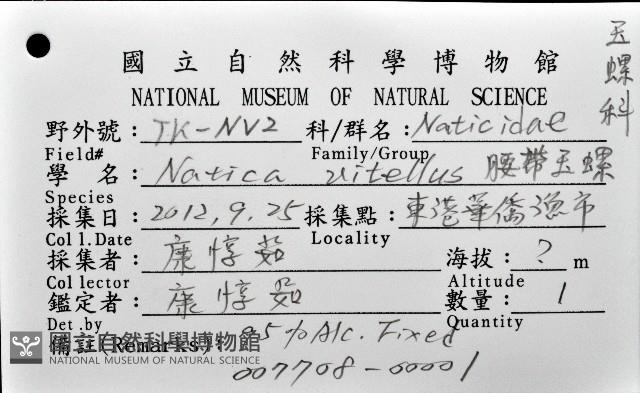 國立自然科學博物館
NATIONAL MUSEUM OF NATURAL SCIENCE
玉螺科
野外號: TK-NV2 科/群名: Naticidae
Field# Family/Group
學名: Natica vitellus 腰帶玉螺
Species
採集日: 2012,9,25 採集點: 東港華僑漁市
Col l. Date Locality
採集者: 康惇茹 海拔: ? m
Col lector Altitude
鑑定者: 康惇茹 數量: 1
Det. by Quantity
備註(Remarks): 95%Alc. Fixed
國立自然科學博物館
NATIONAL MUSEUM OF NATURAL SCIENCE
007708-00001